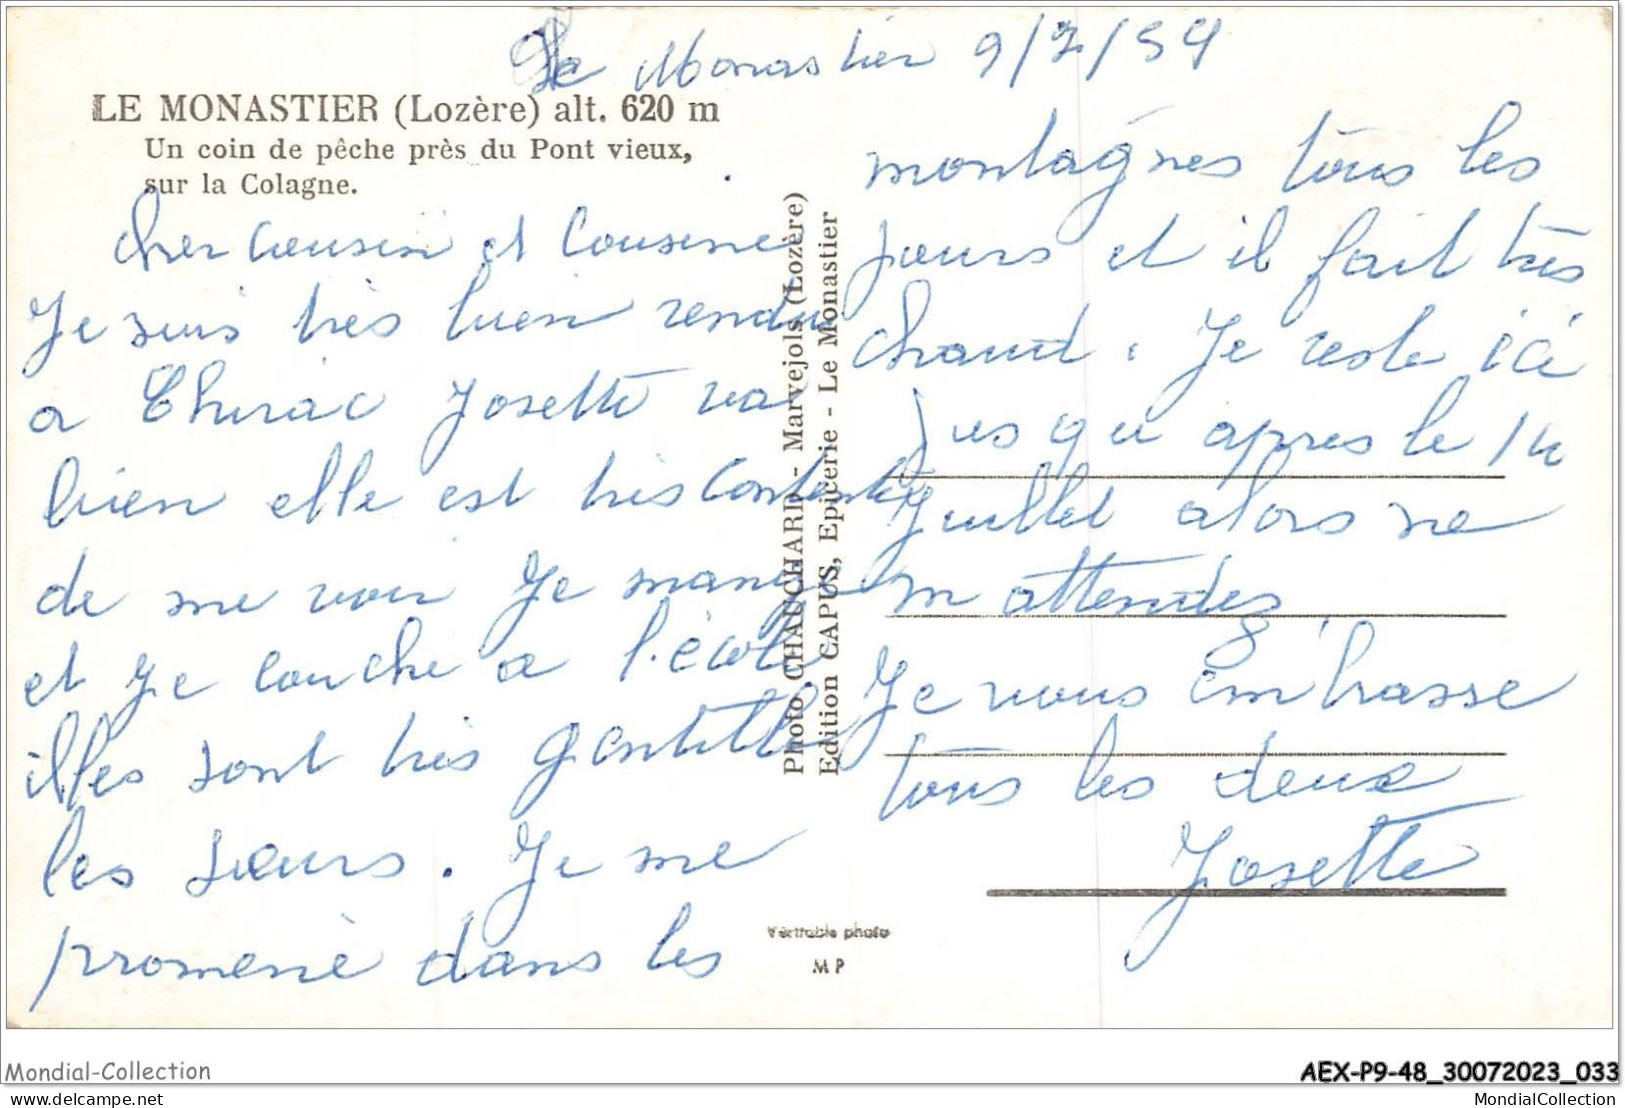 Le Monastier 9/7/59
LE MONASTIER (Lozère) alt. 620 m
Un coin de pêche près du Pont vieux,
sur la Colagne.
cher Cousin et Cousine
Je suis très bien rendu
a Chirac Josette va
bien elle est très Contente
de me voir Je mange
et Je couche a l'école
illes sont très gentille
les sœurs. Je me
promène dans les
montagnes tous les
jours et il fait très
chaud. Je reste ici
Jusqu apres le 14
Juillet alors ne
m attendes
Je vous embrasse
tous les deux
Josette
Photo CHAUCHARD - Marvejols (Lozère)
Edition CAPUS, Epicerie - Le Monastier
Véritable photo
MP
Mondial-Collection
AEX-P9-48_30072023_033
delcampe.net
MondialCollection